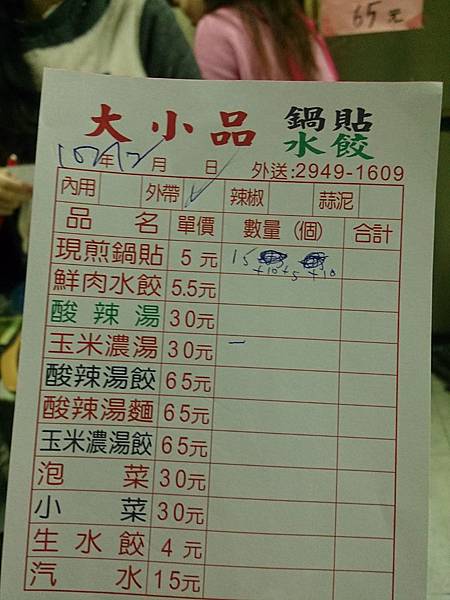 65元
大小品 鍋貼
水餃
107年12月 日 外送:2949-1609
內用 外帶 ✓ 辣椒 蒜泥
品名 單價 數量(個) 合計
現煎鍋貼 5元 15 +10+5 +10
鮮肉水餃 5.5元
酸辣湯 30元
玉米濃湯 30元 一
酸辣湯餃 65元
酸辣湯麵 65元
玉米濃湯餃 65元
泡菜 30元
小菜 30元
生水餃 4元
汽水 15元